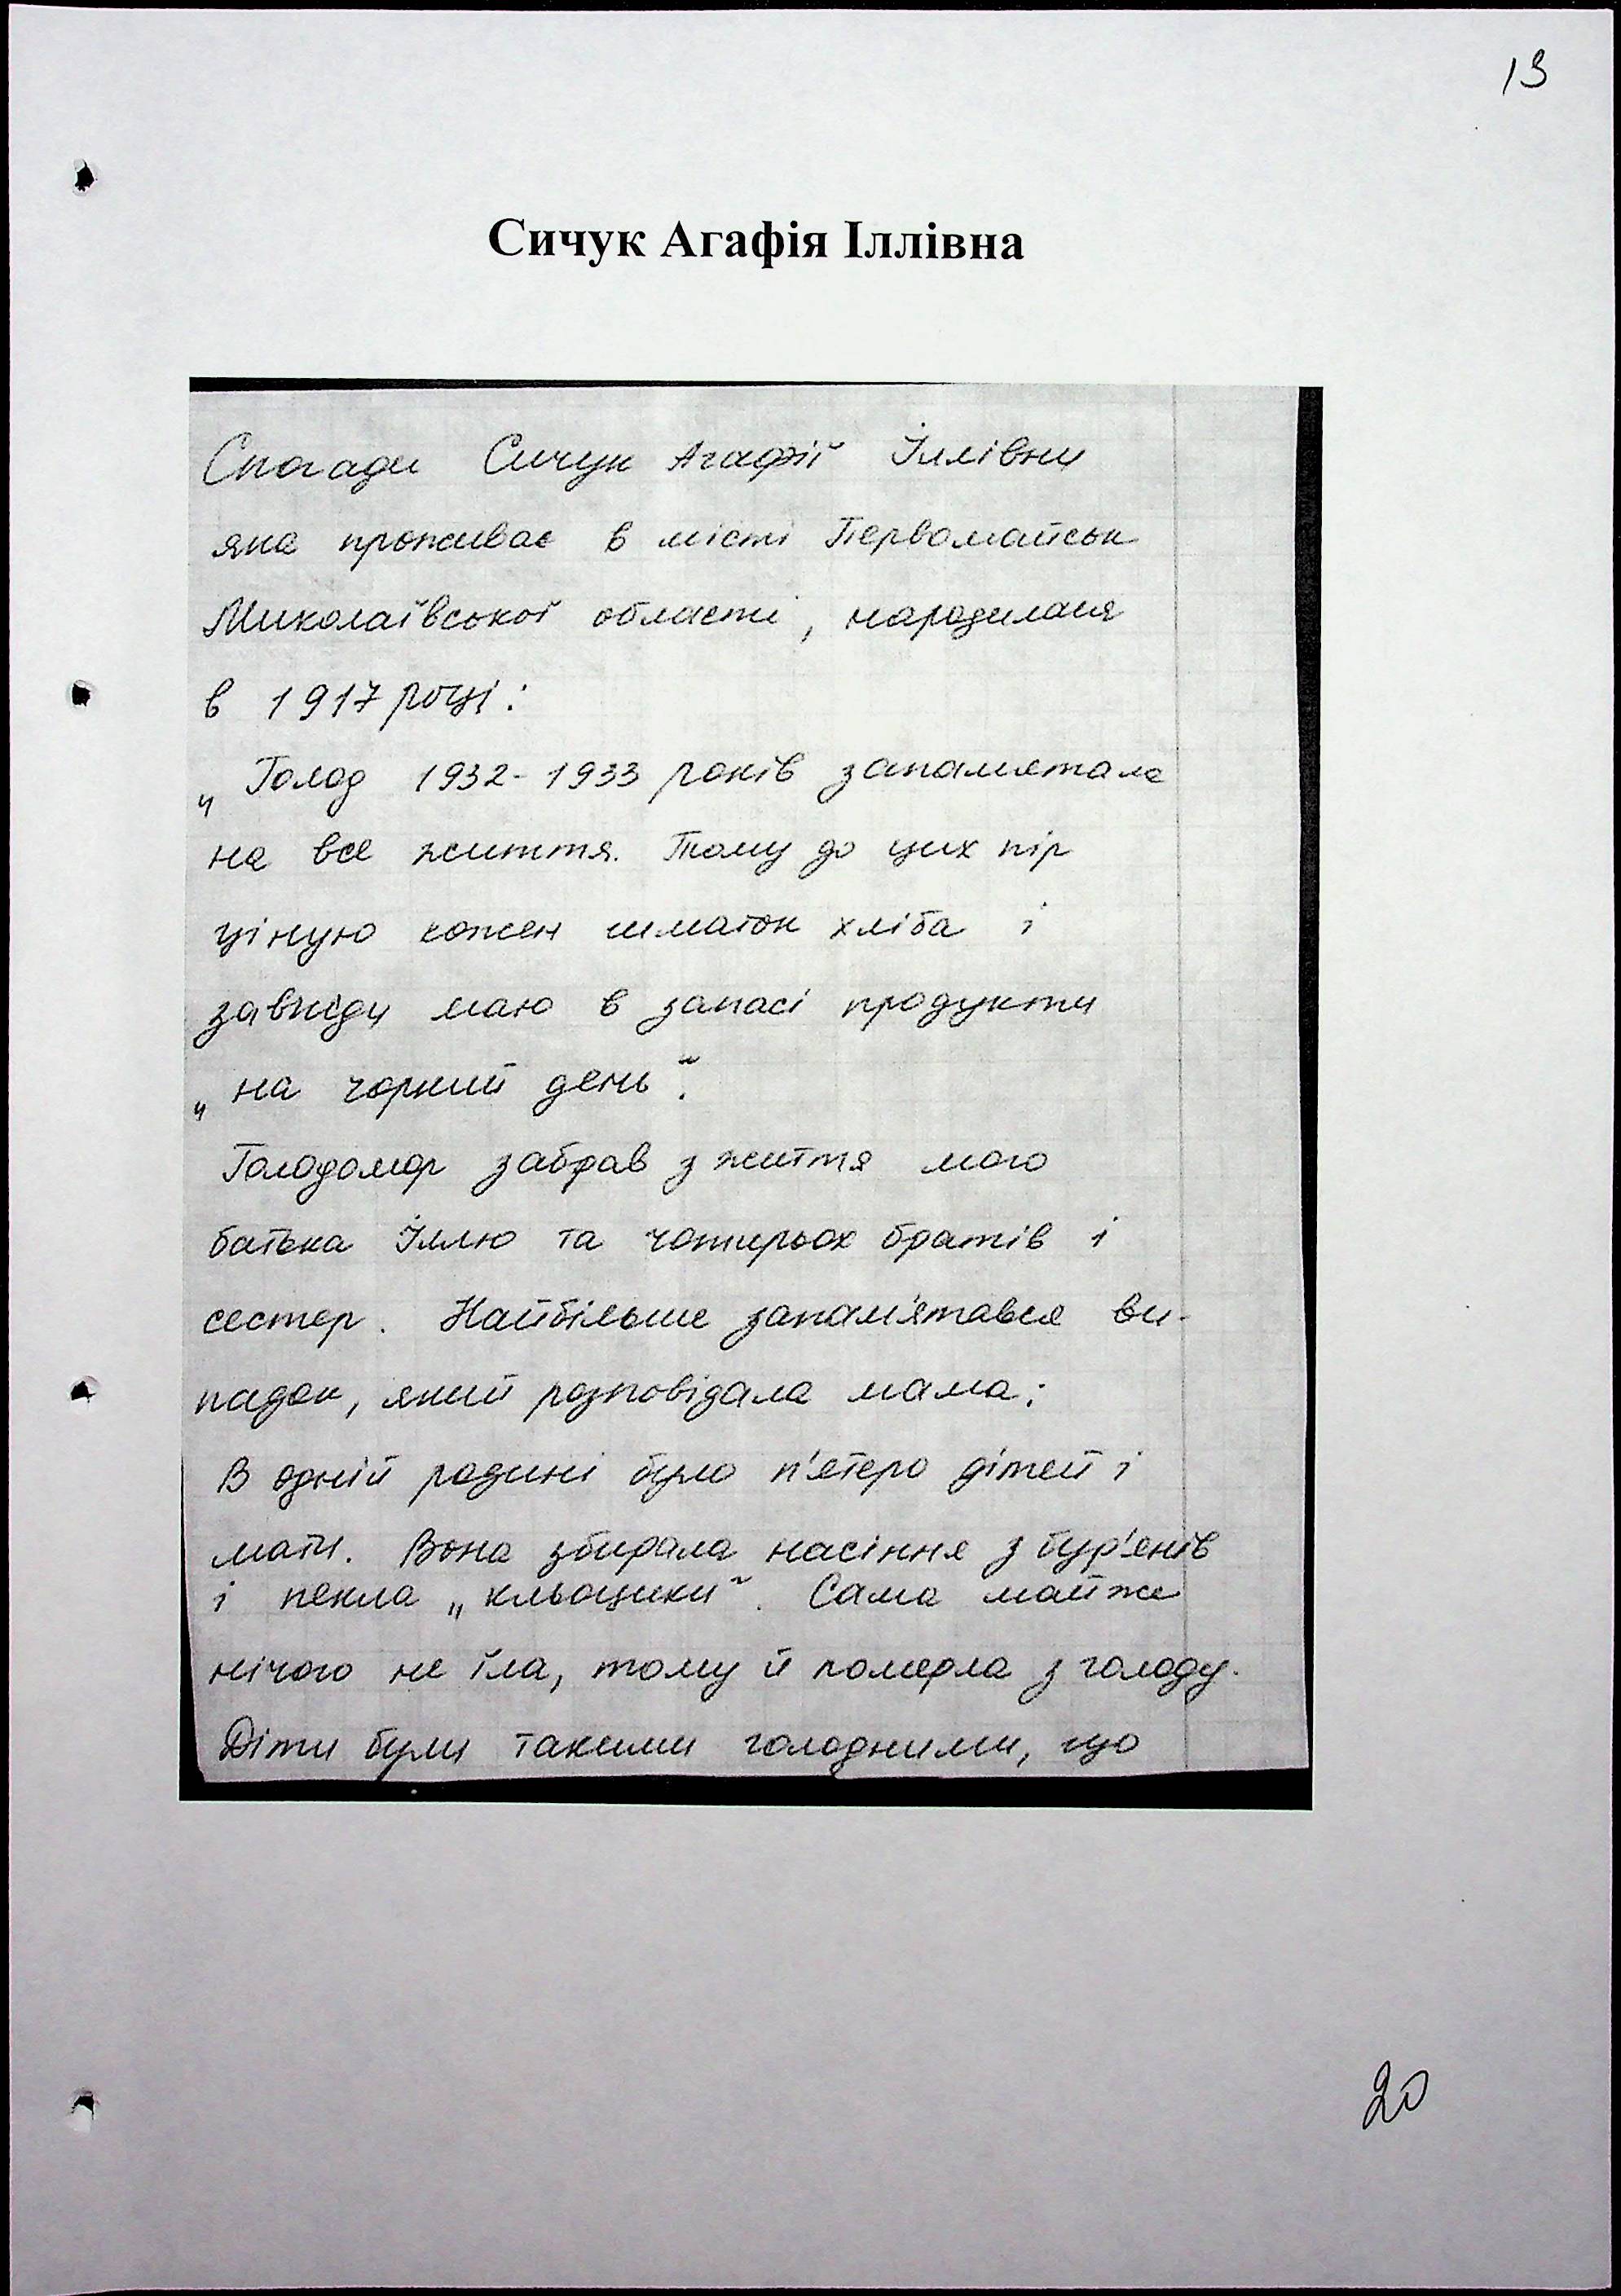 13
Сичук Агафія Іллівна
Спогади Сичук Агафії Іллівни
яка проживає в місті Первомайськ
Миколаївської області, народилася
в 1917 році:
„Голод 1932-1933 років запамятала
на все життя. Тому до цих пір
ціную кожен шматок хліба і
завжди маю в запасі продукти
„на чорний день“.
Голодомор забрав з життя мого
батька Іллю та чотирьох братів і
сестер. Найбільше запам'ятався ви-
падок, який розповідала мама:
В одній родині було п'ятеро дітей і
мати. Вона збирала насіння з бур'янів
і пекла „кльоцики“. Сама майже
нічого не їла, тому й померла з голоду.
Діти були такими голодними, що
20